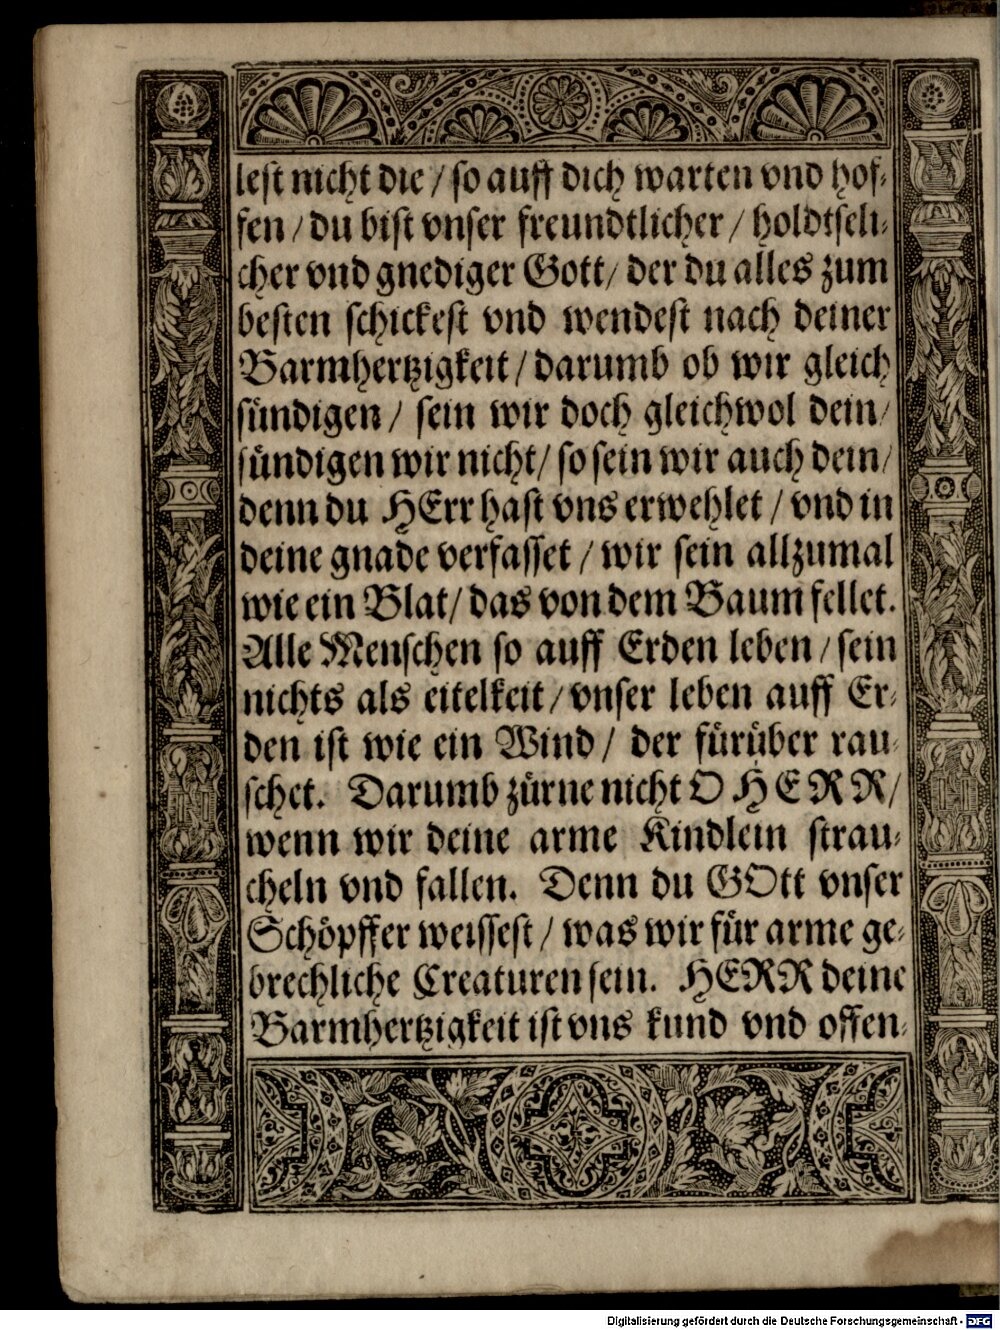 lest nicht die / so auff dich warten vnd hof-
fen / du bist vnser freundtlicher / holdtseli-
cher vnd gnediger Gott / der du alles zum
besten schickest vnd wendest nach deiner
Barmhertzigkeit / darumb ob wir gleich
sündigen / sein wir doch gleichwol dein /
sündigen wir nicht / so sein wir auch dein /
denn du HErr hast vns erwehlet / vnd in
deine gnade verfasset / wir sein allzumal
wie ein Blat / das von dem Baum fellet.
Alle Menschen so auff Erden leben / sein
nichts als eitelkeit / vnser leben auff Er-
den ist wie ein Wind / der fürüber rau-
schet. Darumb zürne nicht O HERR /
wenn wir deine arme Kindlein strau-
cheln vnd fallen. Denn du GOtt vnser
Schöpffer weissest / was wir für arme ge-
brechliche Creaturen sein. HERR deine
Barmhertzigkeit ist vns kund vnd offen-
Digitalisierung gefördert durch die Deutsche Forschungsgemeinschaft - DFG